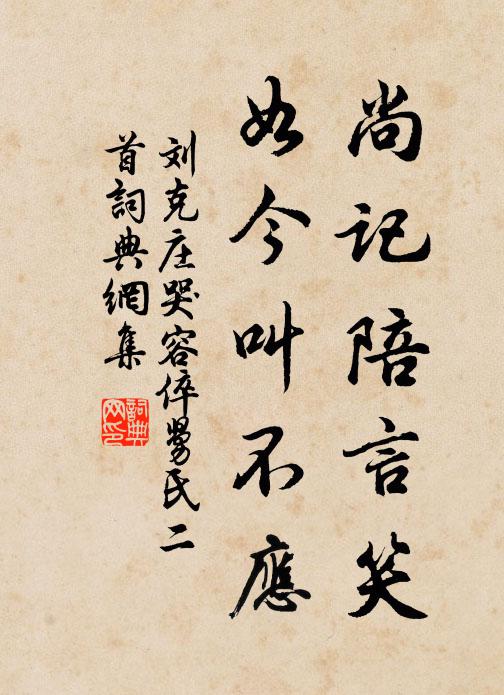 尚记陪言笑
如今叫不應
刘克庄哭容倅舅氏二
首詞典網集
詞典
网印